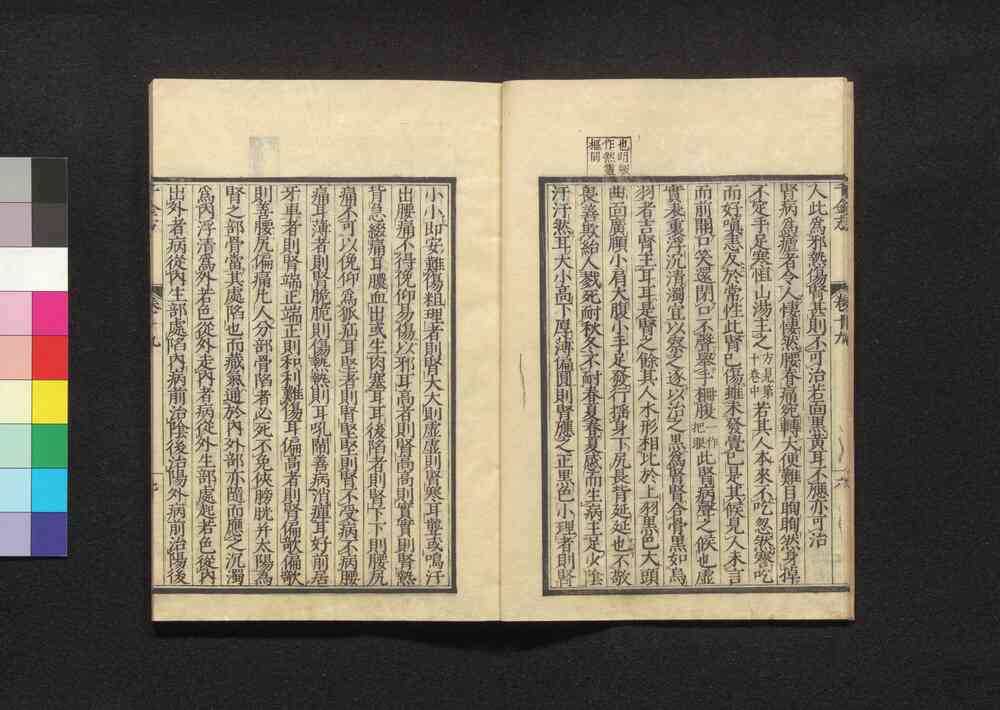 也明堂
作然靈
樞同
人此爲邪熱傷腎甚則不可治若面黑黄耳不應亦可治
腎病爲瘧者令人悽悽然腰脊痛宛轉大便難目眴眴然身掉
不定手足寒恒山湯主之方見第卷中若其人本來不吃忽然謇吃
而好嗔恚反於常性此腎已傷雖未發覺已是其候見人未言
而前開口笑還閉口不聲舉手柵腹一作把眼此腎病聲之候也虚
實表裏浮沉清濁宜以察之逐以治之黑爲腎腎合骨黑如烏
羽者吉腎主耳耳是腎之餘其人水形相比於上羽黑色大頭
曲面廣頤小肩大腹小手足發行搖身下尻長背延延也不敬
畏善欺紿人戮死耐秋冬不耐春夏春夏感而生病主足少陰
汗汗然耳大小高下厚薄偏圓則腎應之正黑色小理者則腎
小小即安難傷粗理者則腎大大則虚虚則腎寒耳聾或鳴汗
出腰痛不得俛仰易傷以邪耳高者則腎高高則實實則腎熱
背急綴痛耳膿血出或生肉塞耳耳後陷者則腎下下則腰尻
痛不可以俛仰爲狐疝耳堅者則腎堅堅則腎不受病不病腰
痛耳薄者則腎脆脆則傷熱熱則耳吼鬧善病消癉耳好前居
牙車者則腎端正端正則和利難傷耳偏高者則腎偏欹偏欹
則善腰尻偏痛凡人分部骨陷者必死不免俠膀胱并太陽爲
腎之部骨當其處陷也而藏氣通於內外部亦隨而應之沉濁
爲內浮清爲外若色從外走內者病從外生部處起若色從內
出外者病從內生部處陷內病前治陰後治陽外病前治陽後